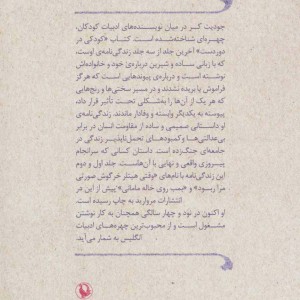 جودیت کر در میان نویسنده‌های ادبیات کودکان،
چهره‌ای شناخته‌شده است. کتاب «کودکی در
دوردست» آخرین جلد از سه جلد زندگی‌نامه‌ی اوست،
که با زبانی ساده و شیرین درباره‌ی خود و خانواده‌اش
نوشته است و درباره‌ی پیوندهایی است که هرگز
فراموش یا بریده نشدند و در مسیر سختی‌ها و رنج‌هایی
که هر یک از آن‌ها را به‌شکلی تحت تأثیر قرار داد،
پیوسته به یکدیگر وابسته و وفادار ماندند. زندگی‌نامه‌ی
او داستانی صمیمی و ساده از مقاومت انسان در برابر
بی‌عدالتی‌ها و کمبودهای تحمل‌ناپذیر زندگی در
جامعه‌ای جنگ‌زده است. داستان کسانی که سرانجام
پیروزی واقعی و نهایی با آن‌هاست. جلد اول و دوم
این زندگی‌نامه با نام‌های «وقتی هیتلر خرگوش صورتی
مرا ربود» و «بمب روی خاله مامانی» پیش از این در
انتشارات مروارید به چاپ رسیده است.
او اکنون در نود و چهار سالگی همچنان به کار نوشتن
مشغول است و از محبوب‌ترین چهره‌های ادبیات
انگلیس به شمار می‌آید.